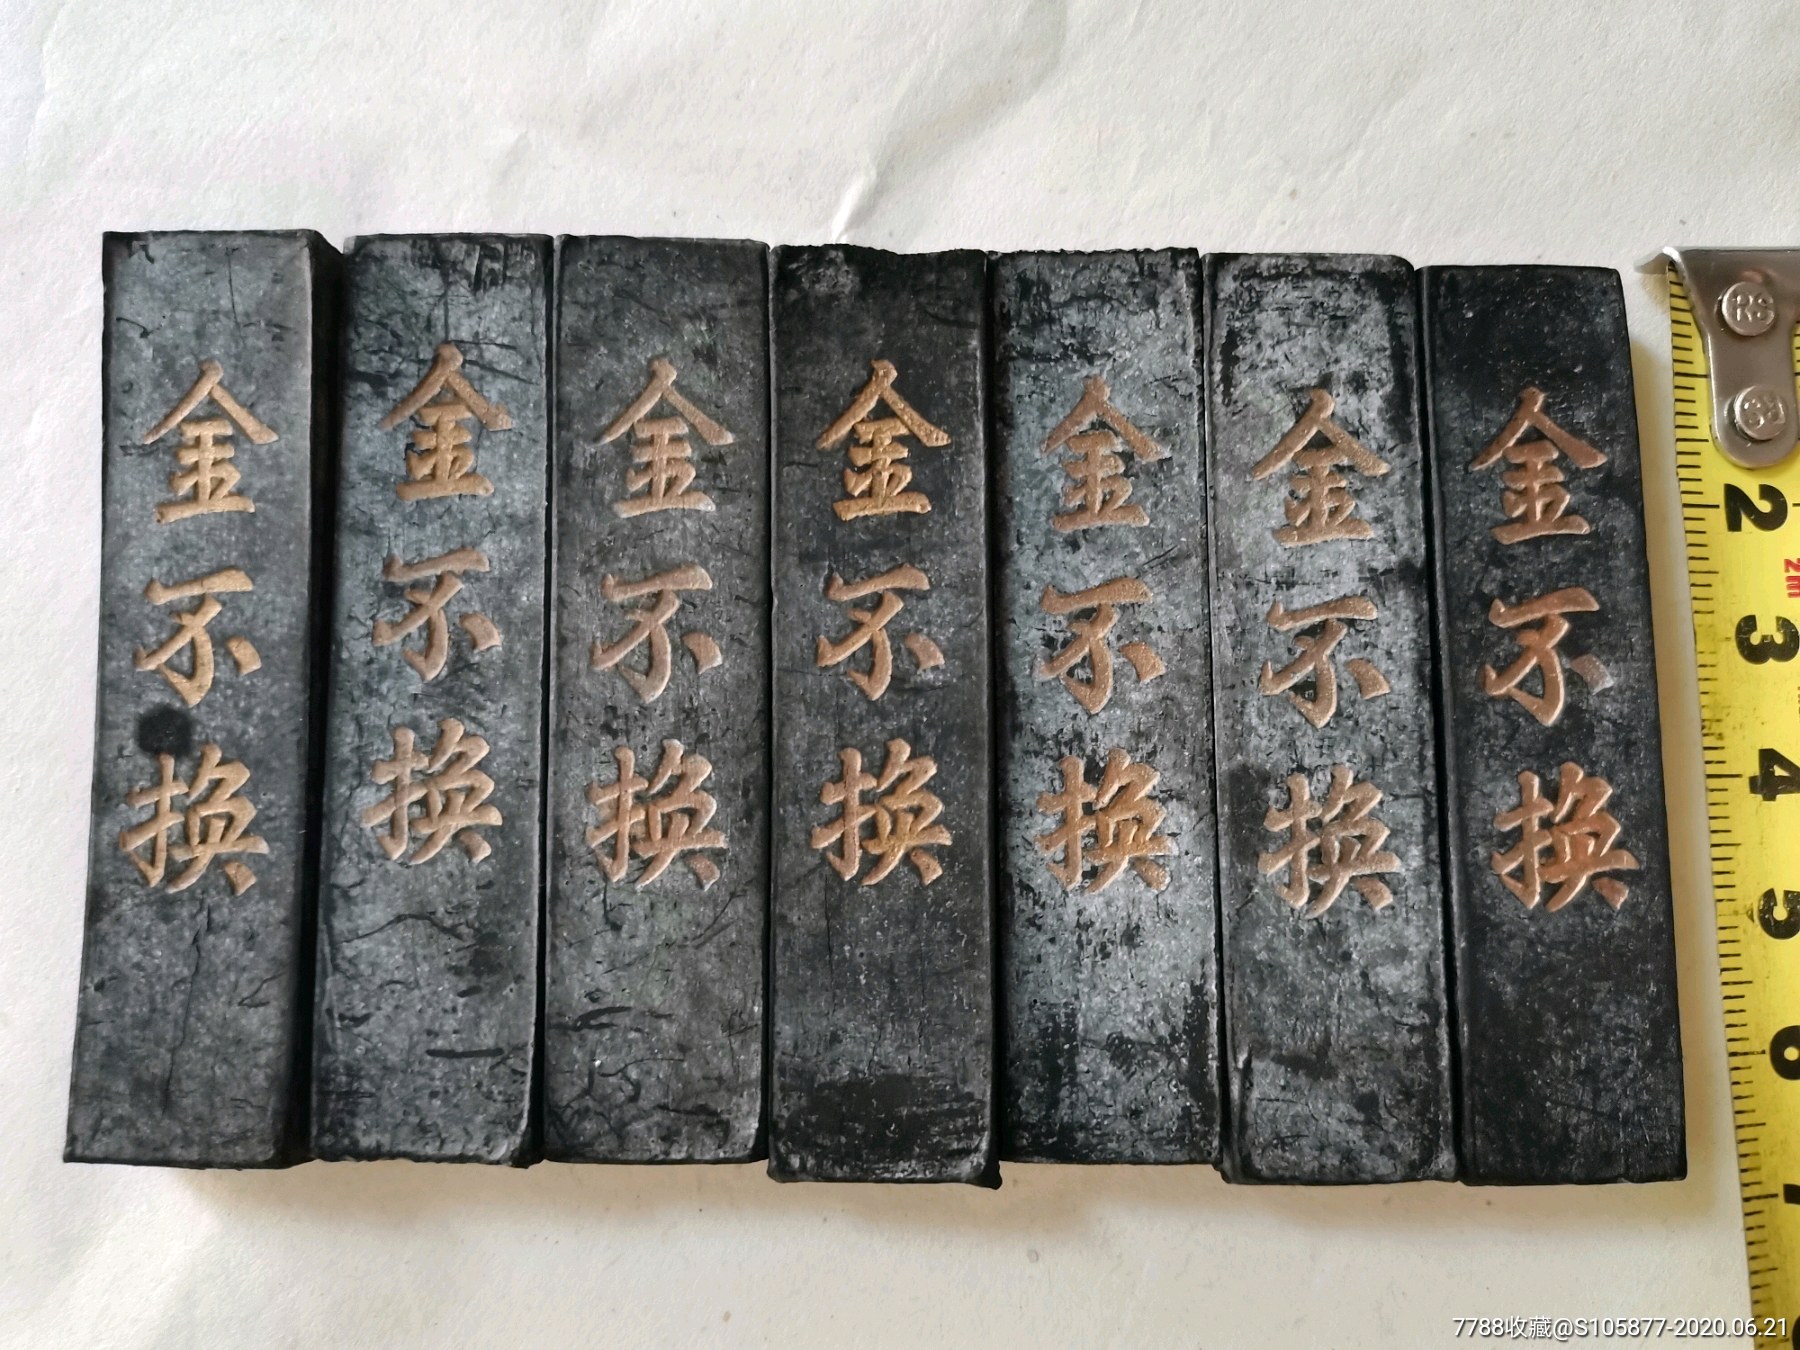 金不换
金不换
金不换
金不换
金不换
金不换
金不换
2
2m
3
4
5
6
7
7788收藏@S105877-2020.06.21